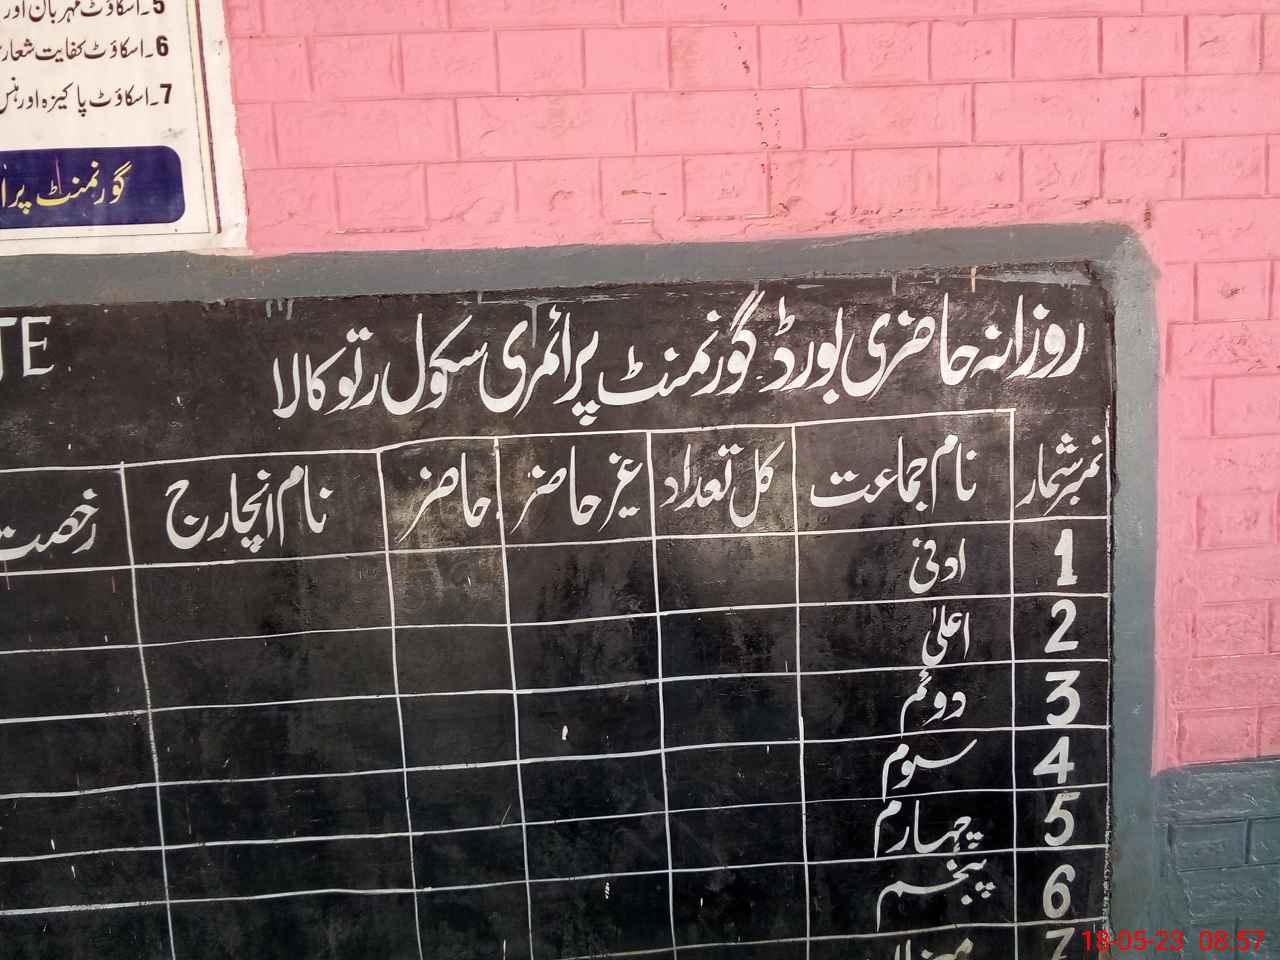 5۔اسکاؤٹ مہربان اور
6۔اسکاؤٹ کفایت شعار
7۔اسکاؤٹ پاکیزہ اور
گورنمنٹ
TE
روزانہ حاضری بورڈ گورنمنٹ پرائمری سکول رتوکالا
نمبرشمار نام جماعت کل تعداد غیر حاضر حاضر نام انچارج رخصت
1 ادنیٰ
2 اعلیٰ
3 دوئم
4 سوم
5 چہارم
6 پنجم
7
18-05-23 08:57